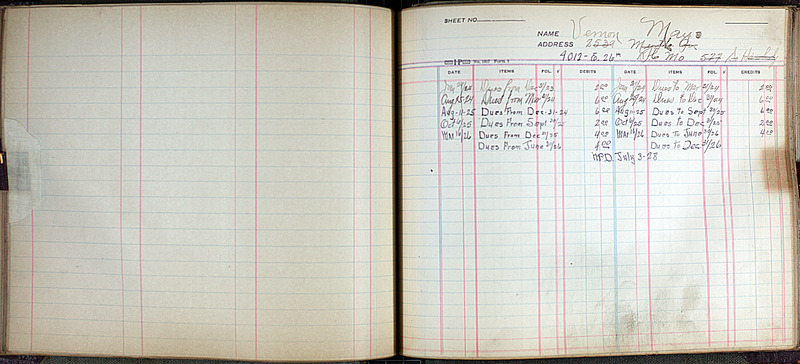 SHEET NO.
NAME Vernon Mays
ADDRESS 2539 Myrtle
4012-E. 26th K.C. Mo 527
No. 1017 Form 1
DATE ITEMS FOL. √ DEBITS DATE ITEMS FOL. √ CREDITS
Jan 2/24 Dues from Dec 31/23 2.00 Jan 2/24 Dues to Mar 31/24 2.00
Aug 25-24 Dues from Mar 31/24 6.00 Aug 25/24 Dues to Dec 31/24 6.00
Aug-11-25 Dues From Dec-31-24 6.00 Aug 11-25 Dues to Sept 30/25 6.00
Oct 6/25 Dues From Sept 30/25 2.00 Oct 6/25 Dues to Dec 31/25 2.00
Mar 16/26 Dues From Dec 31/25 4.00 Mar 16/26 Dues to June 30/26 4.00
Dues From June 30/26 4.00 Dues to Dec 31/26
N.P.D. July 3-28